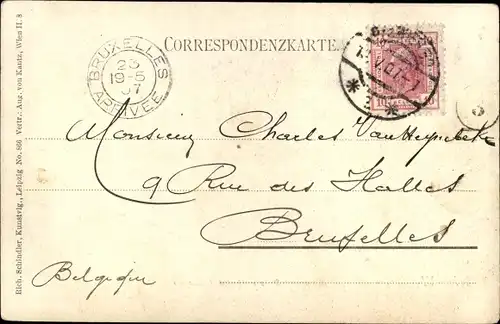 CORRESPONDENZKARTE.
BRUXELLES
23
19-5
07
ARRIVEE
10
Monsieur Charles
9 Rue des Halles
Bruxelles
Belgique
Rich. Schindler, Kunstvlg., Leipzig No. 866 Vertr.: Aug. von Kautz, Wien II. 8